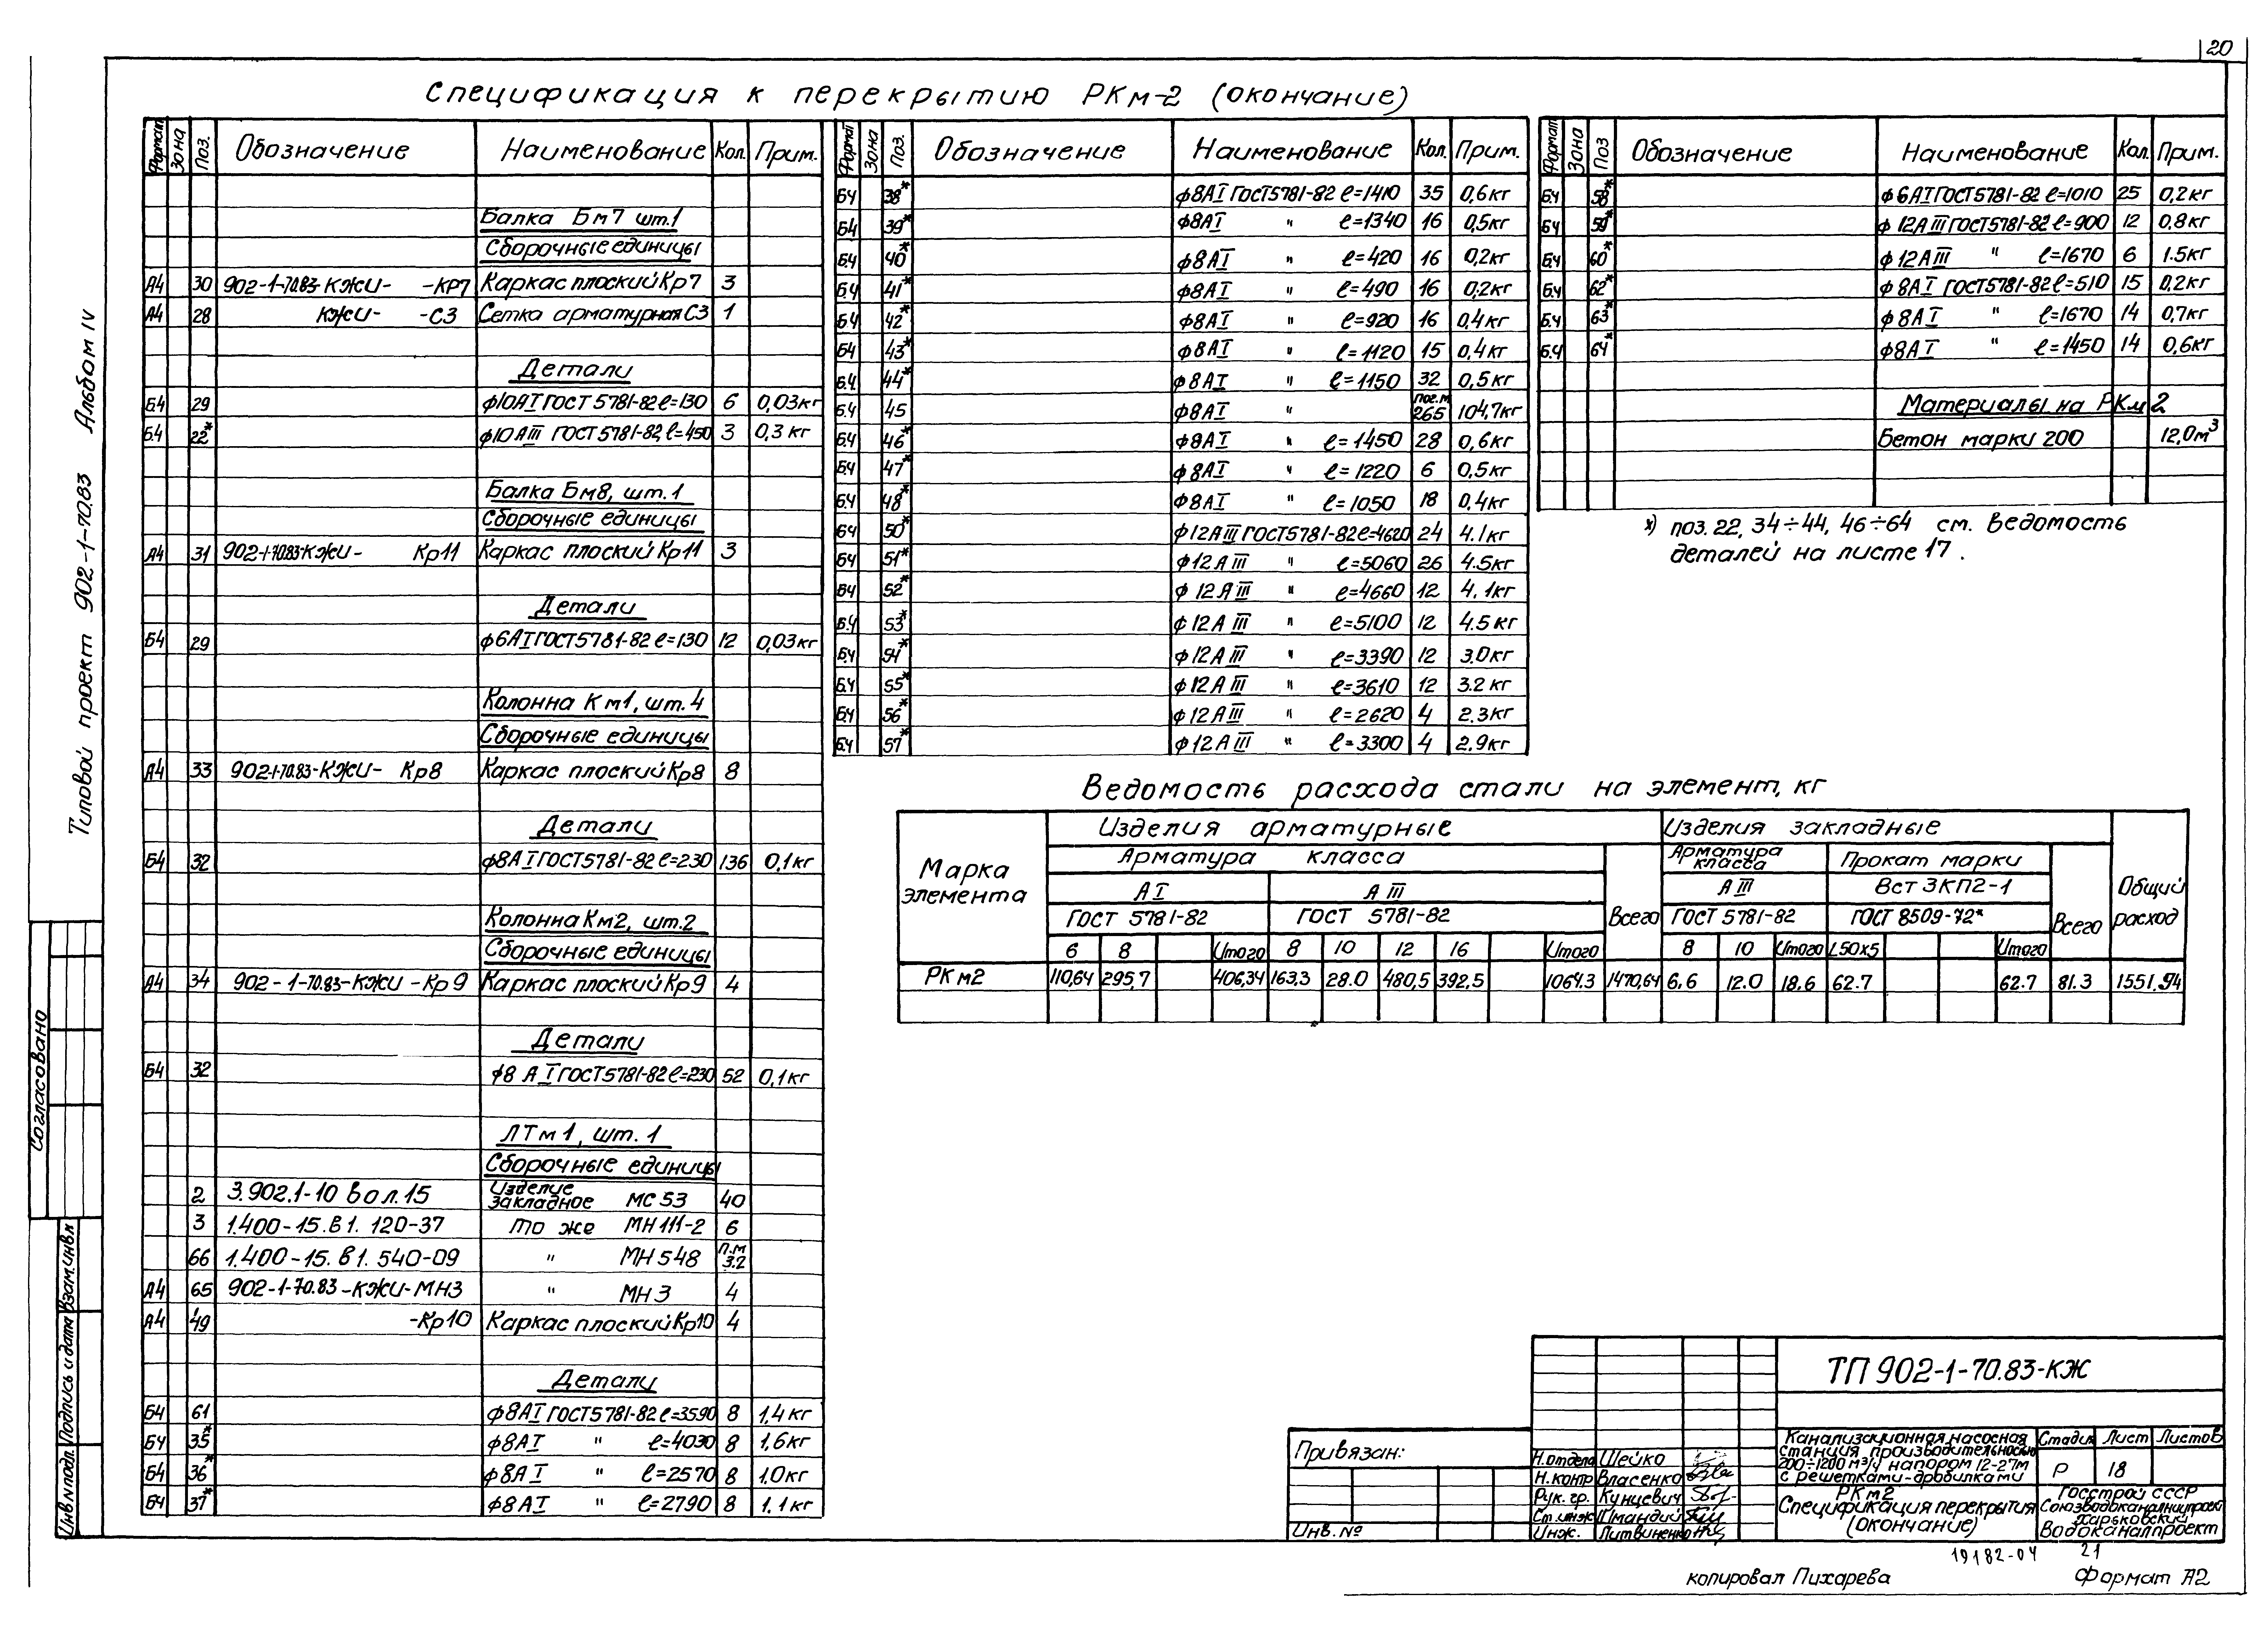 20
Спецификация к перекрытию РКм-2 (окончание)
Формат Зона Поз. Обозначение Наименование Кол. Прим.
Балка Бм7 шт.1
Сборочные единицы
А4 30 902-1-70.83-КЖИ- -КР7 Каркас плоский Кр7 3
А4 28 КЖИ- -С3 Сетка арматурная С3 1
Детали
Б4 29 ϕ10АI ГОСТ 5781-82 ℓ=130 6 0,03кг
Б.4 22* ϕ10АIII ГОСТ 5781-82, ℓ=450 3 0,3 кг
Балка Бм8, шт.1
Сборочные единицы
А4 31 902-1-70.83-КЖИ- Кр11 Каркас плоский Кр11 3
Детали
Б4 29 ϕ6АI ГОСТ 5781-82 ℓ=130 12 0,03кг
Колонна Км1, шт.4
Сборочные единицы
А4 33 902-1-70.83-КЖИ- Кр8 Каркас плоский Кр8 8
Детали
Б4 32 ϕ8АI ГОСТ 5781-82 ℓ=230 136 0,1кг
Колонна Км2, шт.2
Сборочные единицы
А4 34 902-1-70.83-КЖИ -Кр9 Каркас плоский Кр9 4
Детали
Б4 32 ϕ8 АI ГОСТ 5781-82 ℓ=230 52 0,1кг
ЛТм1, шт. 1
Сборочные единицы
2 3.902.1-10 вол.15 Изделие закладное МС 53 40
3 1.400-15.в1. 120-37 то же МН 111-2 6
66 1.400-15.в1. 540-09 " МН 548 п.м 3.2
А4 65 902-1-70.83-КЖИ-МН3 " МН 3 4
А4 49 -Кр10 Каркас плоский Кр10 4
Детали
Б4 61 ϕ8АI ГОСТ 5781-82 ℓ=3590 8 1,4кг
Б4 35* ϕ8АI " ℓ=4030 8 1,6кг
Б4 36* ϕ8АI " ℓ=2570 8 1.0кг
Б4 37* ϕ8АI " ℓ=2790 8 1.1кг
Формат Зона Поз. Обозначение Наименование Кол. Прим.
Б4 38* ϕ8АI ГОСТ 5781-82 ℓ=1410 35 0,6кг
Б4 39* ϕ8АI " ℓ=1340 16 0,5кг
Б.4 40* ϕ8АI " ℓ=420 16 0,2кг
Б.4 41* ϕ8АI " ℓ=490 16 0,2кг
Б.4 42* ϕ8АI " ℓ=920 16 0,4кг
Б4 43* ϕ8АI " ℓ=1120 15 0,4кг
Б.4 44* ϕ8АI " ℓ=1150 32 0,5кг
Б.4 45 ϕ8АI " пог.м 265 104,7кг
Б.4 46* ϕ8АI " ℓ=1450 28 0,6кг
Б.4 47* ϕ8АI " ℓ=1220 6 0,5кг
Б.4 48* ϕ8АI " ℓ=1050 18 0,4кг
Б4 50* ϕ12АIII ГОСТ 5781-82 ℓ=4620 24 4.1кг
Б4 51* ϕ12АIII " ℓ=5060 26 4.5кг
Б4 52* ϕ12АIII " ℓ=4660 12 4.1кг
Б.4 53* ϕ12АIII " ℓ=5100 12 4.5кг
Б.4 54* ϕ12АIII " ℓ=3390 12 3.0кг
Б.4 55* ϕ12АIII " ℓ=3610 12 3.2 кг
Б.4 56* ϕ12АIII " ℓ=2620 4 2.3кг
Б.4 57* ϕ12АIII " ℓ=3300 4 2.9кг
Формат Зона Поз Обозначение Наименование Кол. Прим.
Б.4 58* ϕ6АI ГОСТ 5781-82 ℓ=1010 25 0,2кг
Б.4 59* ϕ12АIII ГОСТ 5781-82 ℓ=900 12 0,8кг
Б.4 60* ϕ12АIII " ℓ=1670 6 1.5кг
Б.4 62* ϕ8АI ГОСТ 5781-82 ℓ=510 15 0,2кг
Б.4 63* ϕ8АI " ℓ=1670 14 0,7кг
Б.4 64* ϕ8АI " ℓ=1450 14 0,6кг
Материалы на РКм 2
Бетон марки 200 12,0м³
*) поз. 22, 34÷44, 46÷64 см. ведомость
деталей на листе 17.
Ведомость расхода стали на элемент, кг
Марка элемента Изделия арматурные Изделия закладные Общий расход
Арматура класса Всего Арматура класса Прокат марки Всего
АI АIII АIII Вст 3КП2-1
ГОСТ 5781-82 ГОСТ 5781-82 ГОСТ 5781-82 ГОСТ 8509-72*
6 8 Итого 8 10 12 16 Итого 8 10 Итого L50х5 Итого
РКм2 110,64 295,7 406,34 163,3 28.0 480,5 392,5 1064.3 1470,64 6,6 12.0 18,6 62.7 62.7 81.3 1551.94
Типовой проект 902-1-70.83 Альбом IV
Согласовано
Инв.№подл. Подпись и дата Взам.инв.№
Привязан:
Инв. №
Н.отдела Шейко
Н.контр Власенко
Рук. гр. Кунцевич
Ст.инж Шмандий
Инж. Литвиненко
ТП 902-1-70.83-КЖ
Канализационная насосная
станция производительностью
200÷1200 м³/ч напором 12-27м
с решетками-дробилками
Стадия Лист Листов
Р 18
РКм2
Спецификация перекрытия
(окончание)
Госстрой СССР
Союзводоканалниипроект
Харьковский
Водоканалпроект
19182-04 21
копировал Пихарева Формат А2